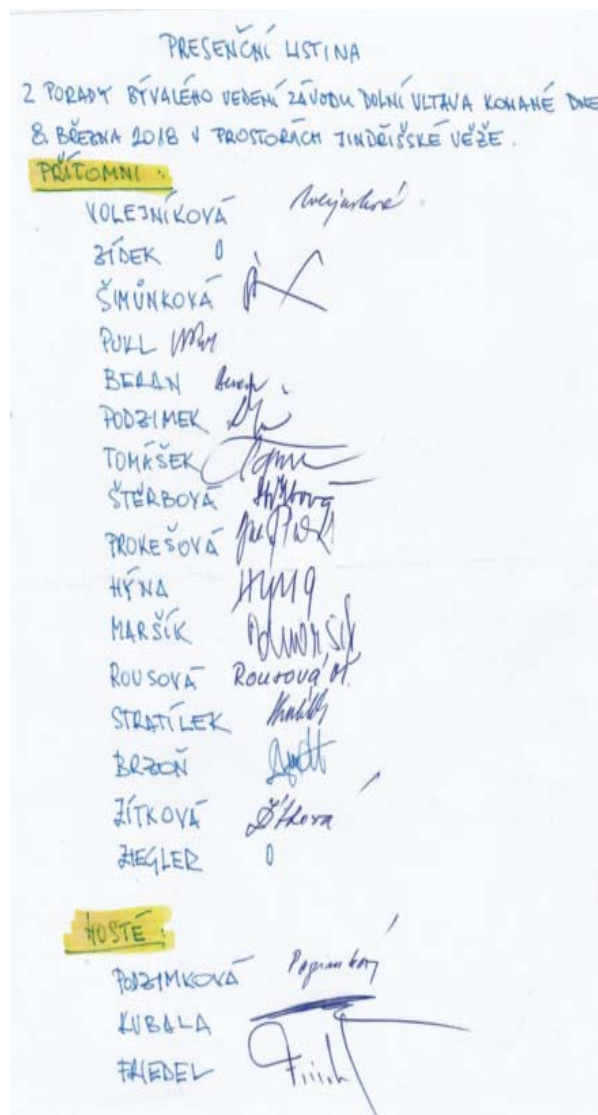 PRESENČNÍ LISTINA
2 PORADY BÝVALÉHO VEDENÍ ZÁVODU DOLNÍ VLTAVA KONANÉ DNE
8. BŘEZNA 2018 V PROSTORÁCH JINDŘIŠSKÉ VĚŽE.
PŘÍTOMNI:
VOLEJNÍKOVÁ
ZÍDEK 0
ŠIMŮNKOVÁ
PUKL
BERAN Beran
PODZIMEK
TOMÁŠEK
ŠTĚRBOVÁ Štěrbová
PROKEŠOVÁ
HÝNA HYNA
MARŠÍK
ROUSOVÁ Rousová M.
STRATÍLEK
BRZOŇ
ŽÍTKOVÁ Žítková
ZIEGLER 0
HOSTÉ:
PODZIMKOVÁ
KUBALA
FRIEDEL